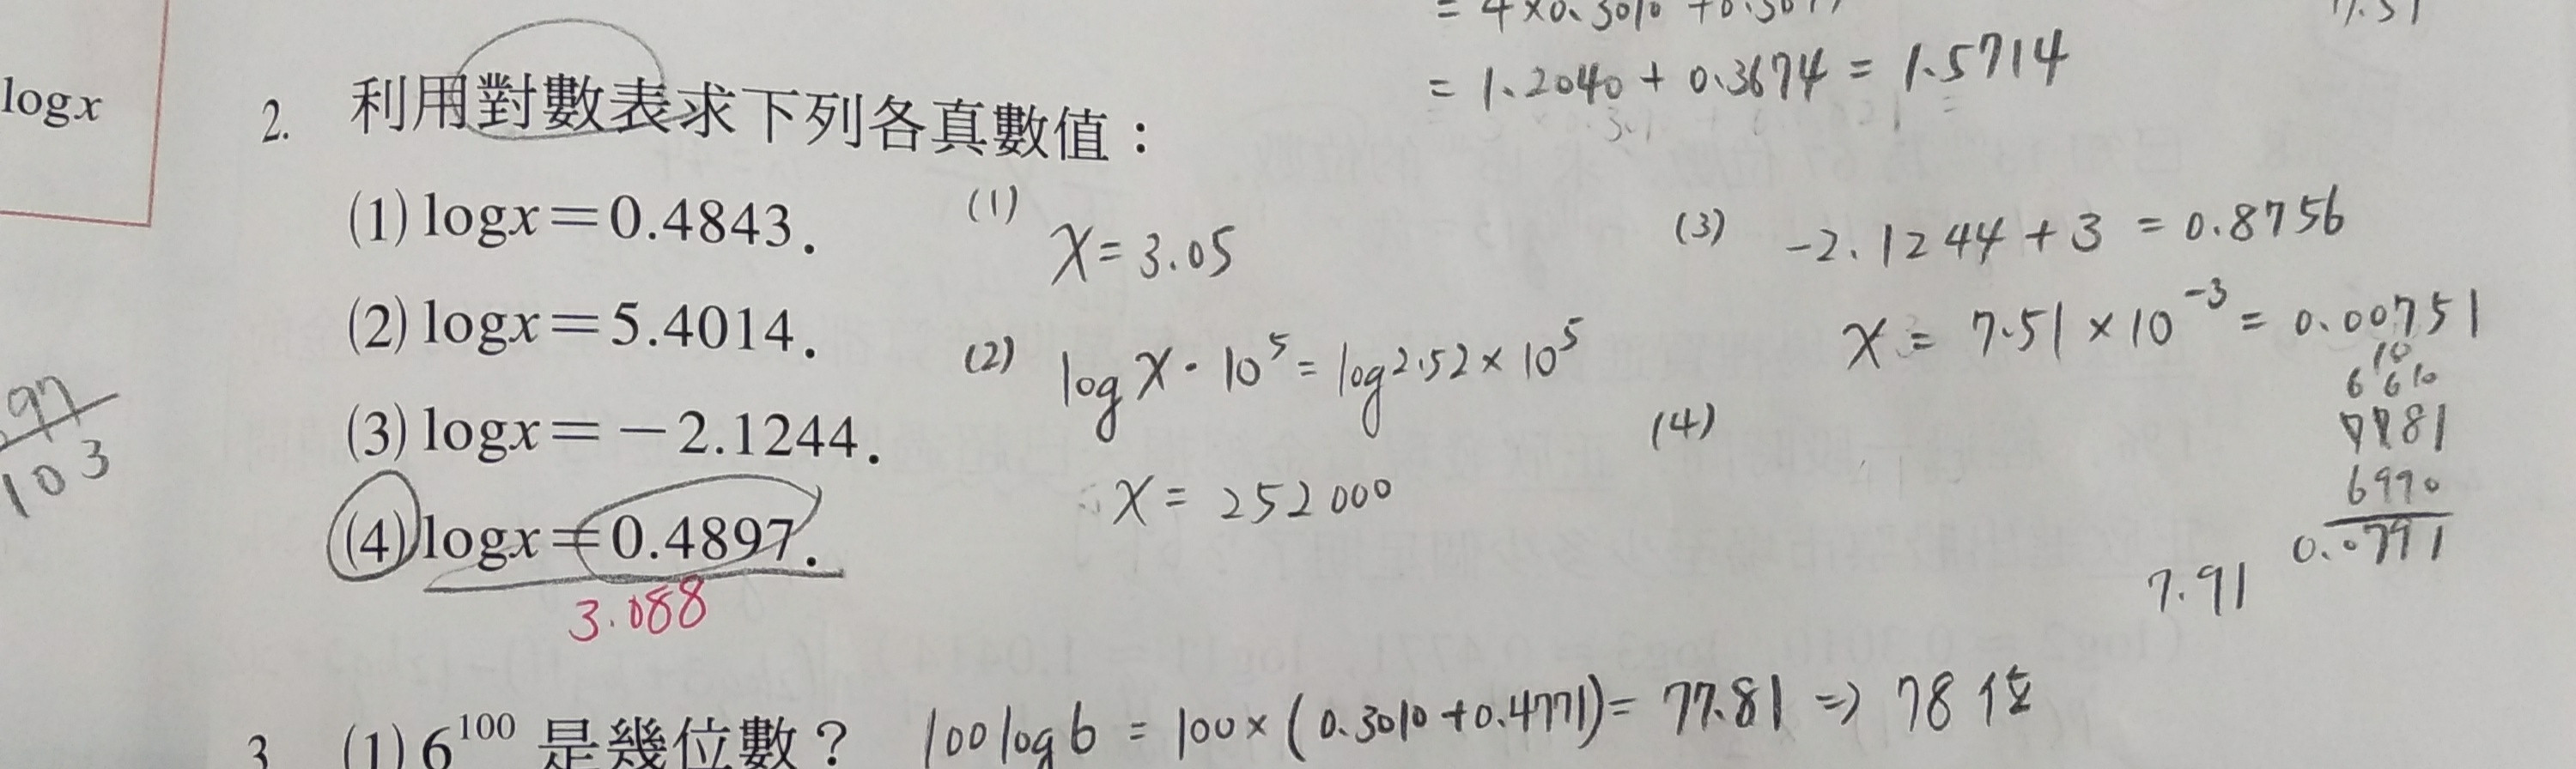 = 4×0.3010 +0.367
= 1.2040 + 0.3674 = 1.5714
logx
2. 利用對數表求下列各真數值：
(1) logx＝0.4843．
(2) logx＝5.4014．
(3) logx＝－2.1244．
(4) logx＝0.4897．
3.088
(1)
x = 3.05
(2) log x · 10⁵ = log2.52 × 10⁵
x = 252000
(3) -2.1244 + 3 = 0.8756
x = 7.51 × 10⁻³ = 0.00751
(4)
10
6 6 10
7781
6990
0.0791
7.91
97
103
3. (1) 6¹⁰⁰ 是幾位數？ 100log6 = 100×(0.3010+0.4771)= 77.81 ⇒ 78位